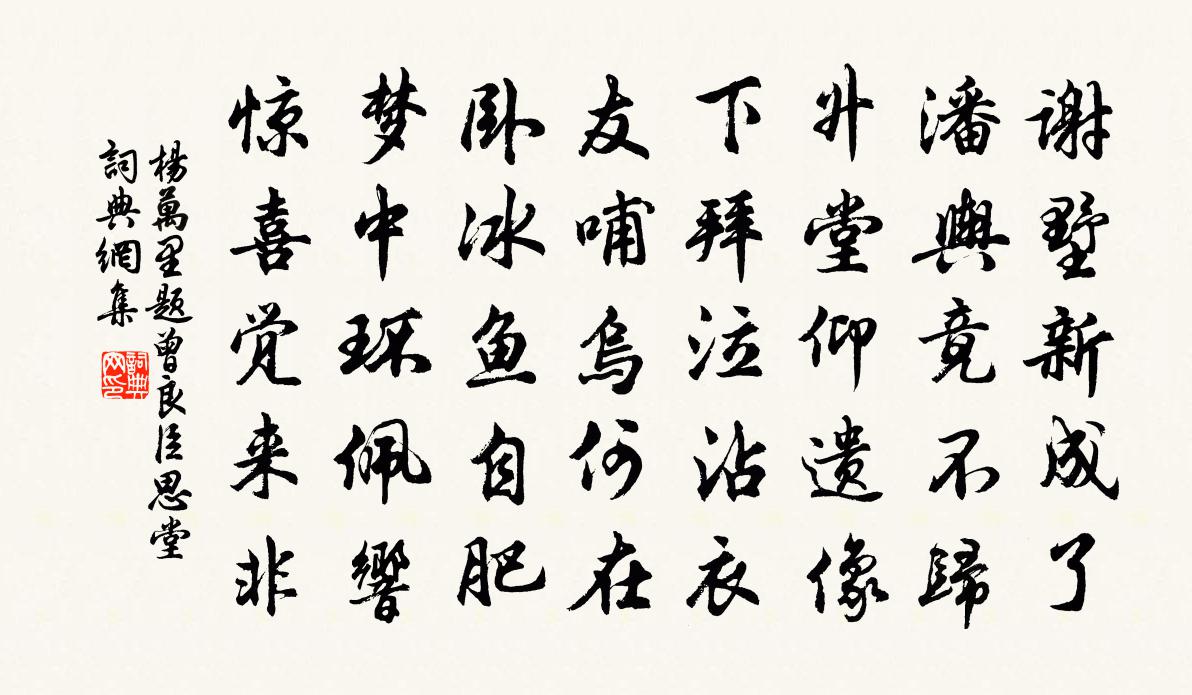 谢墅新成了
潘舆竟不归
升堂仰遗像
下拜泣沾衣
友哺乌何在
卧冰鱼自肥
梦中环佩响
惊喜觉来非
楊萬里题曾良臣思堂
詞典網集
詞典网印